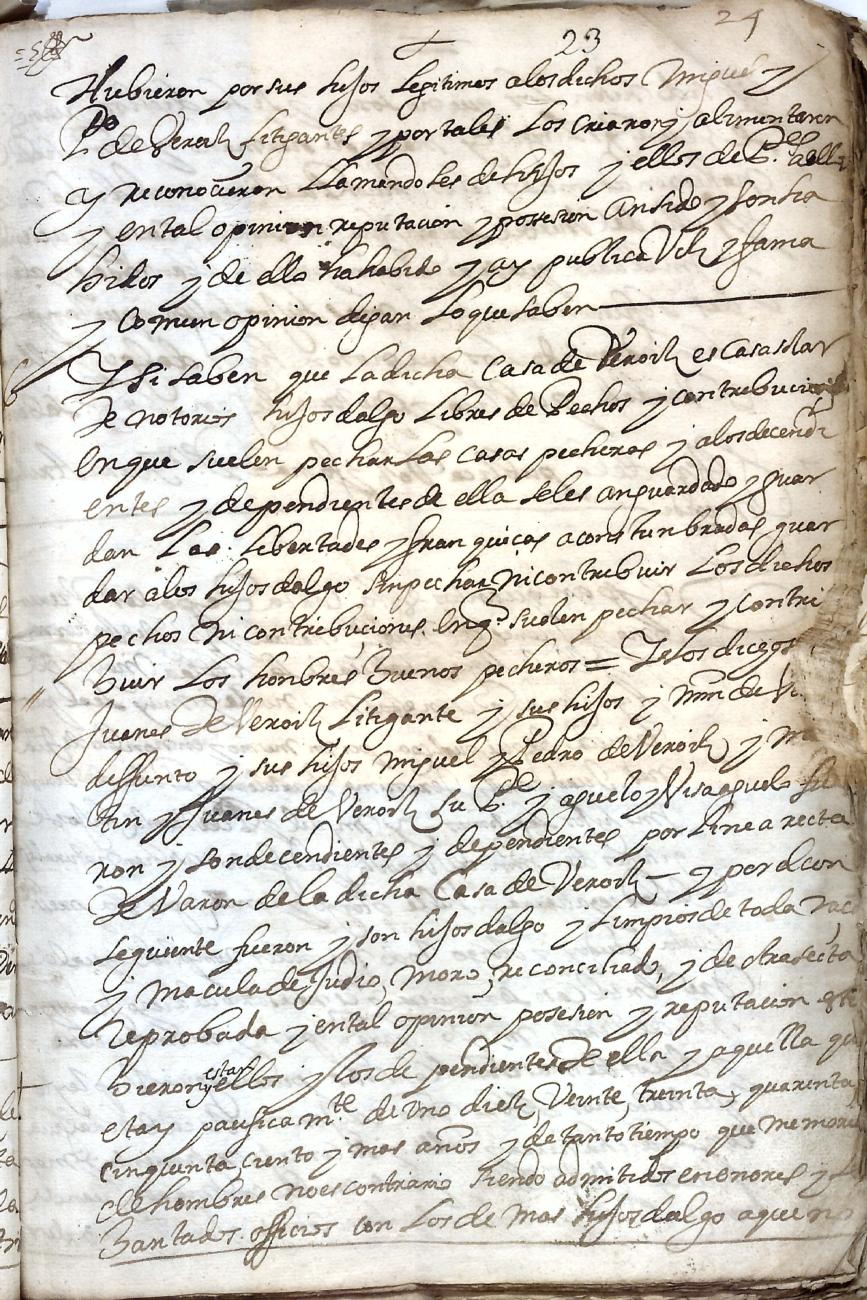 23 24
Hubieron por sus hijos legitimos a los dichos Miguel y
P.do de Veroiz litigantes y por tales los criaron y alimentaron
y reconocieron llamandoles de hijos y ellos de P.es a ellos
y en tal opinion reputacion y possesion an sido y son tra
hidos y de ello ha habido y ay publica Voz y fama
y comun opinion digan lo que saben
6 Y si saben que la dicha Casa de Veroiz es Casa solar
de notorios hijosdalgo libres de Pechos y contribuciones
en que suelen pechar las casas pecheras y a los decendi
entes y dependientes de ella se les an guardado y guar
dan las libertades y franquicas acostunbradas guar
dar a los hijosdalgo sin pechar ni contribuir los dichos
pechos ni contribuciones en q.e suelen pechar y contri
buir los honbres buenos pecheros = Y los dichos
Juanes de Veroiz litigante y sus hijos y Mrn de
deffunto y sus hijos Miguel y Pedro de Veroiz y Mar
tin y Juanes de Veroiz su P.e y aguelo y Visaguelo fue
ron y son decendientes y dependientes por linea recta
de Varon de la dicha Casa de Veroiz – y por el con
seguiente fueron y son hijosdalgo y limpios de toda raca
y macula de Judio, Moro, reconciliado, y de otra secta
reprobada y en tal opinion posesion y reputacion estu
bieron y estan ellos y los dependientes de ella y aquella qui
eta y pacificam.te de uno diez, veinte, treinta, quarenta
cinquenta ciento y mas años y de tanto tiempo que memoria
de hombres no es contrario siendo admitidos en onores y
bantados officios con los demas hijosdalgo a que no